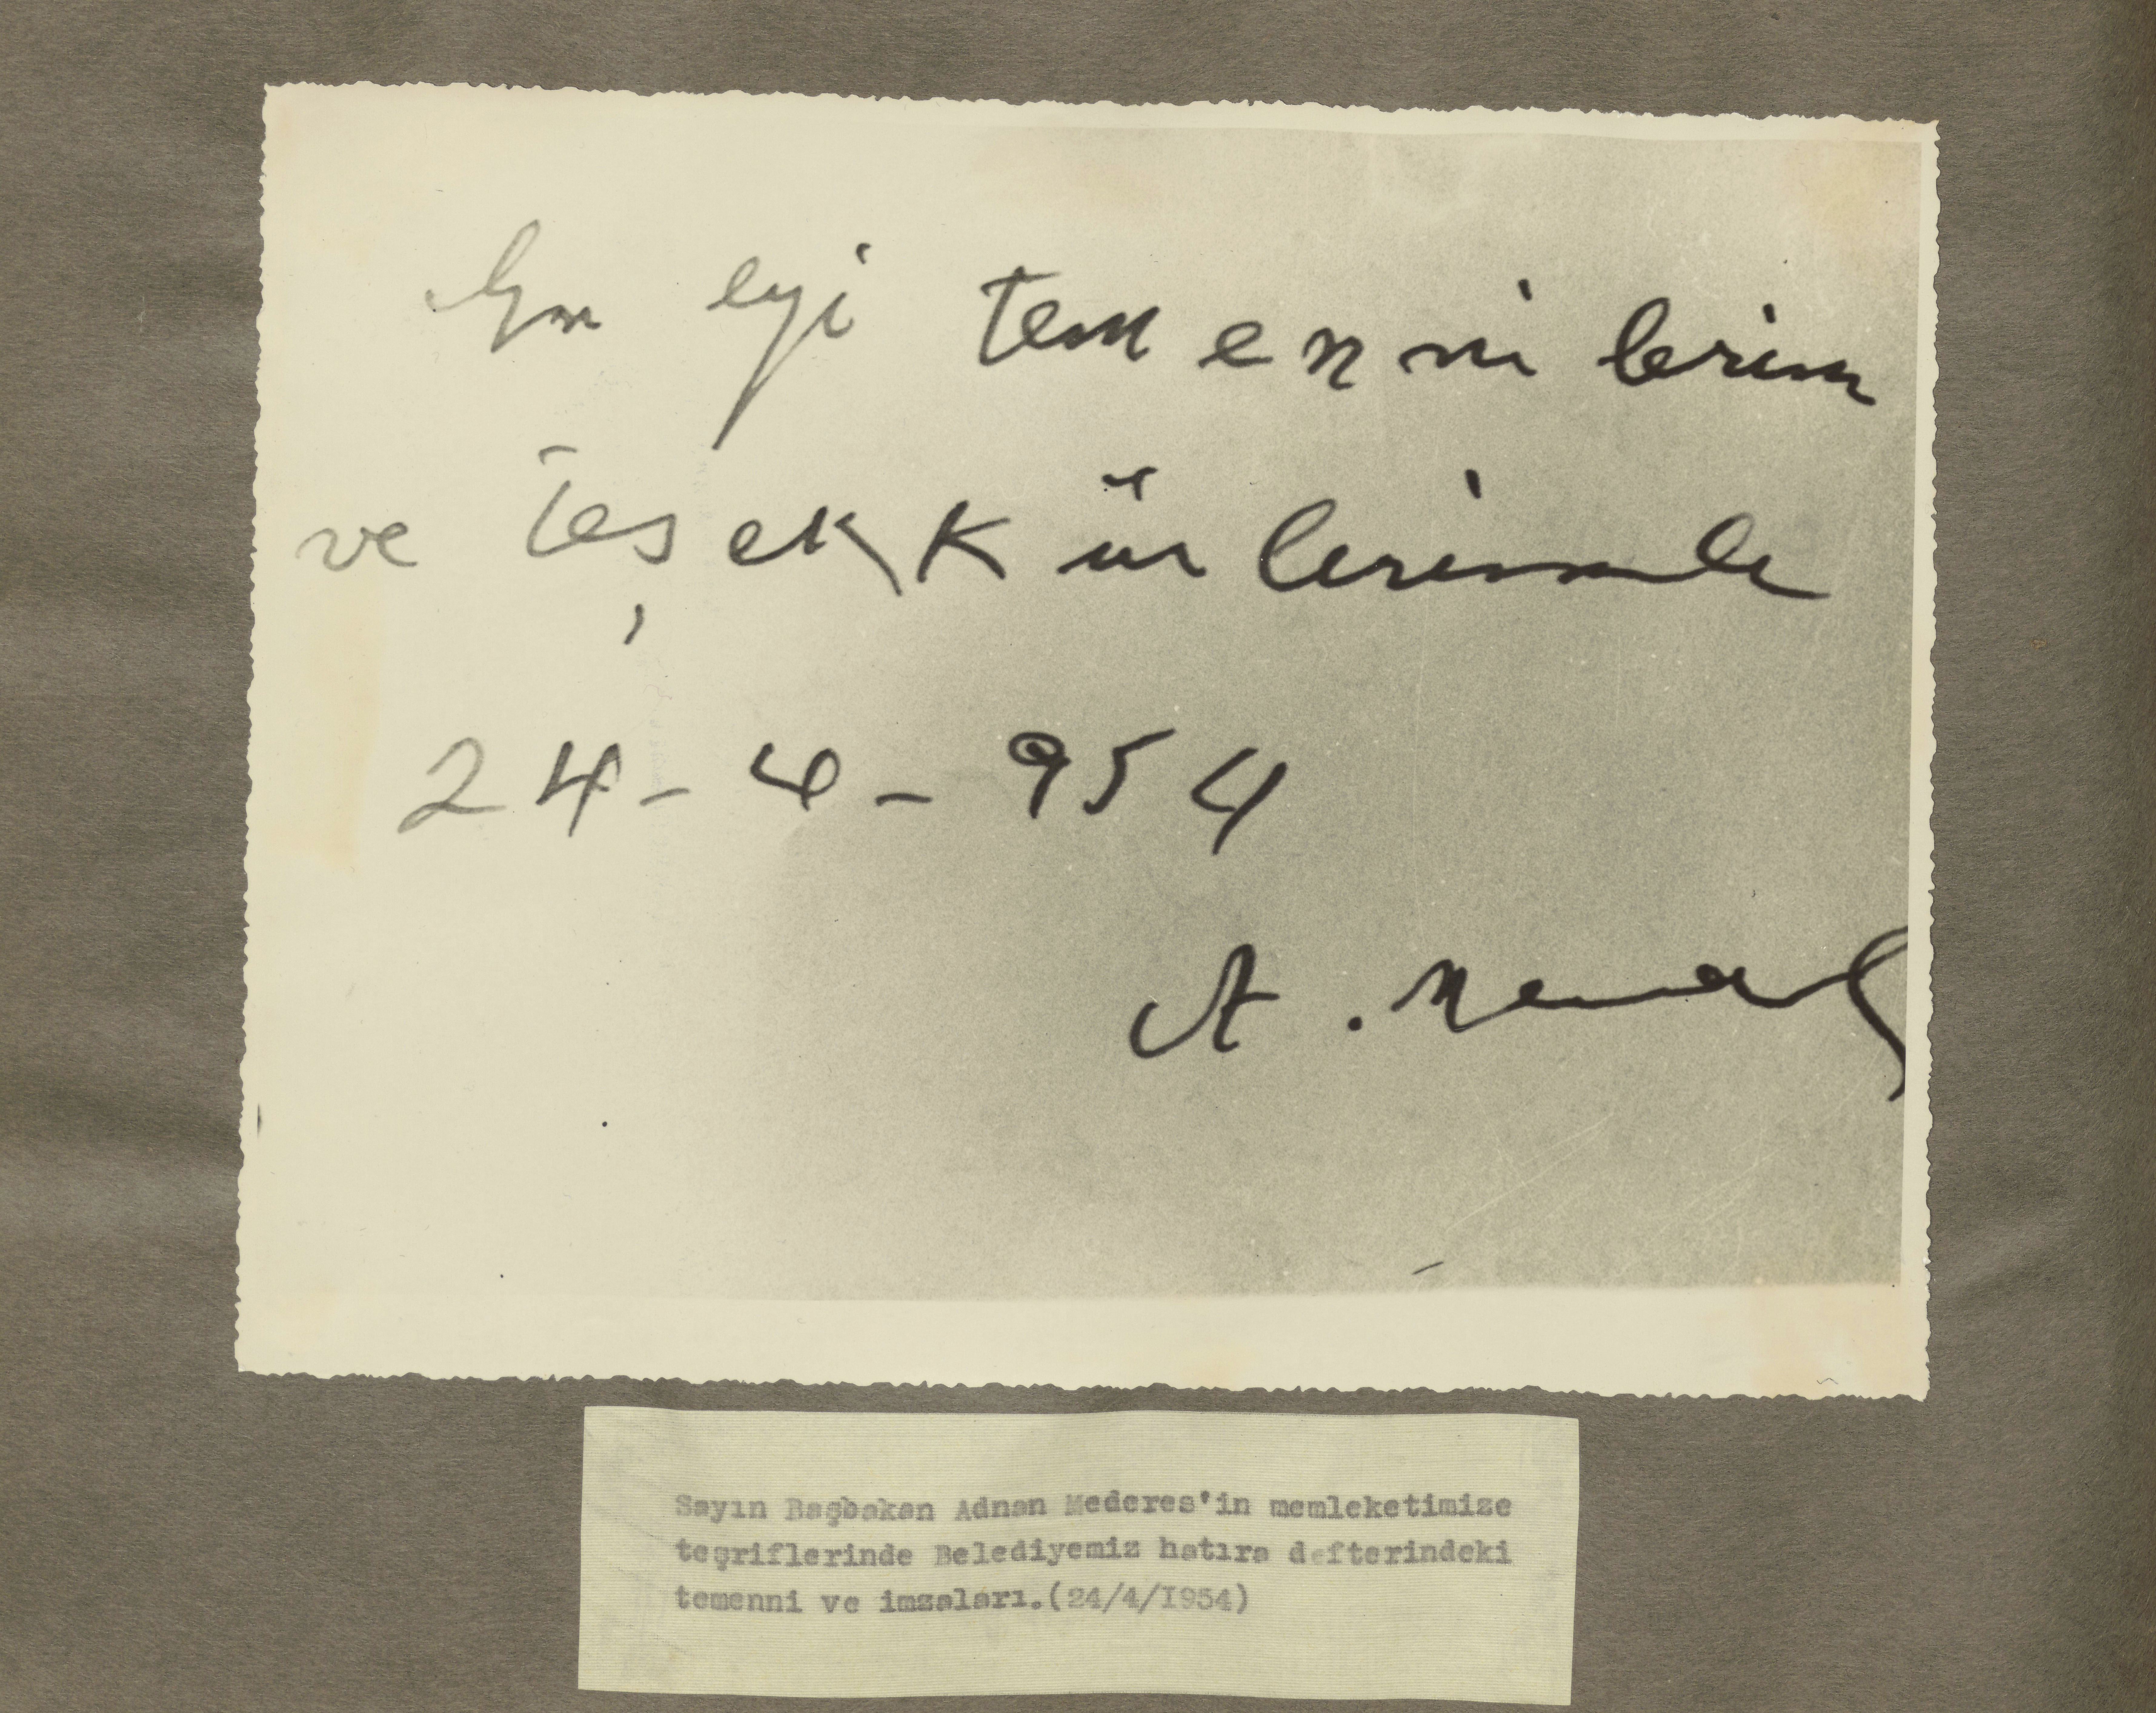 En eyi temennilerim
ve teşekkürlerimle
24-4-954
A. Menderes
Sayın Başbakan Adnan Mederes'in memleketimize
teşriflerinde Belediyemiz hatıra defterindeki
temenni ve imzaları.(24/4/I954)